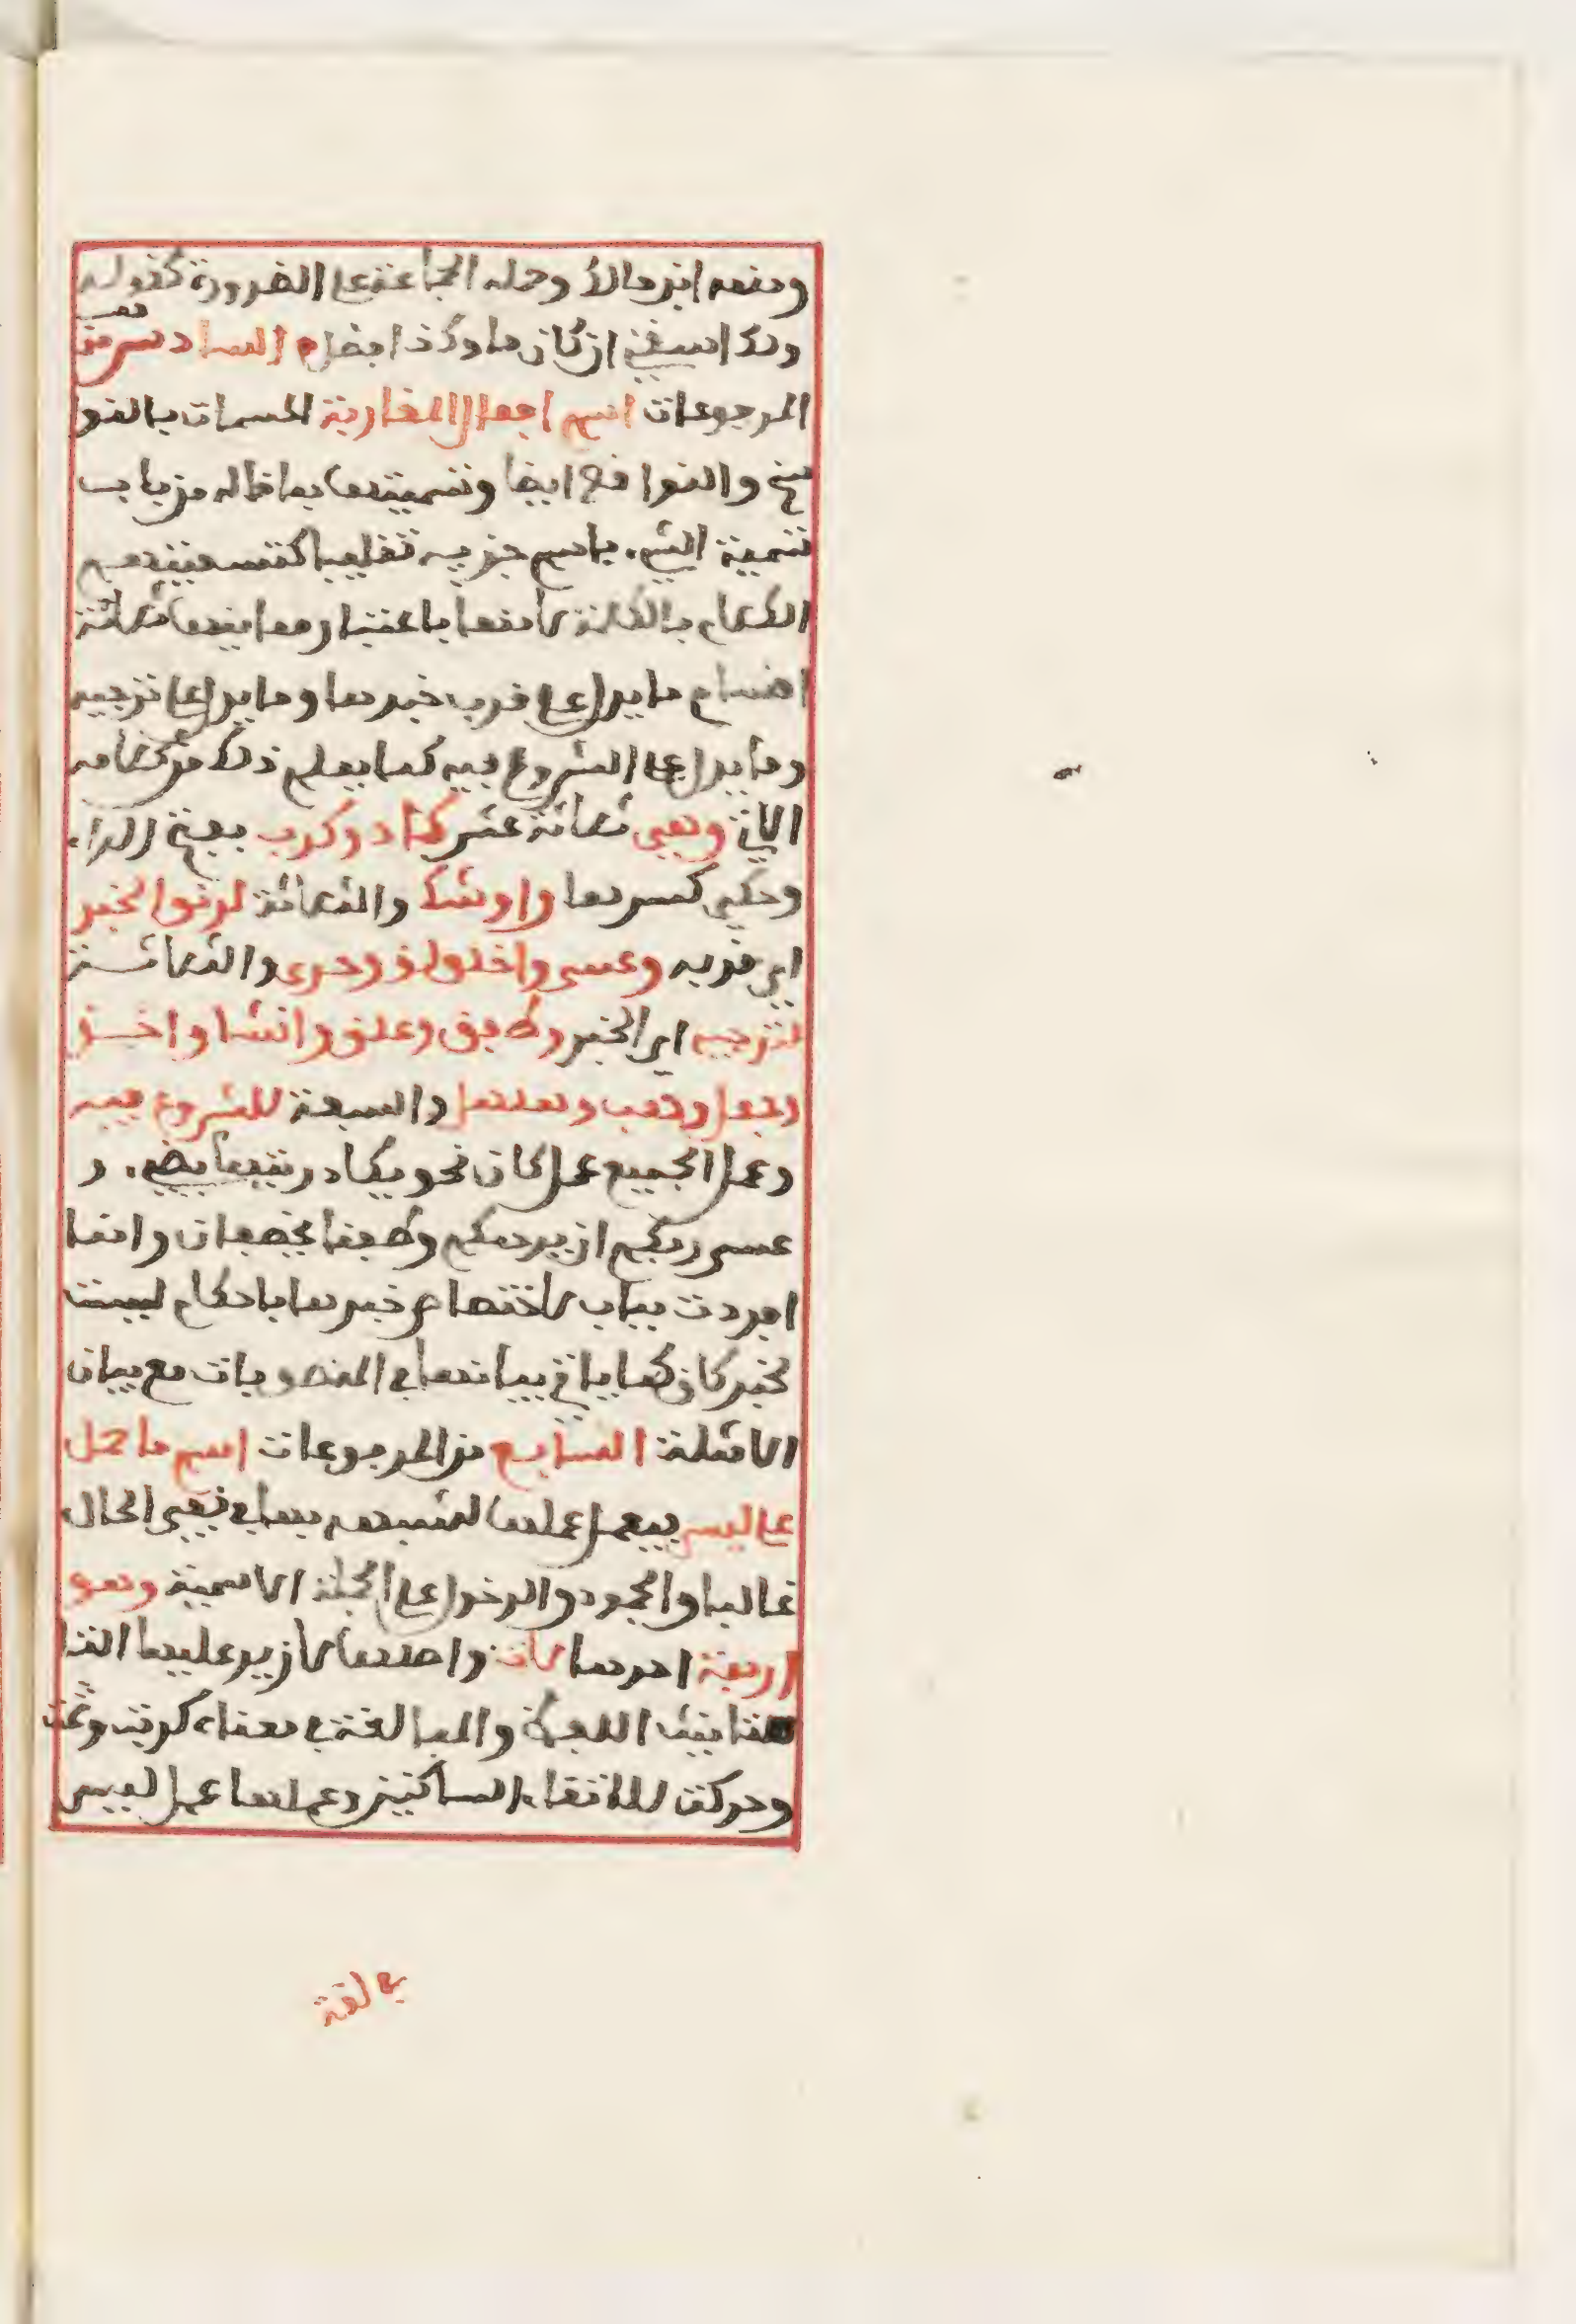 ومنعه ابن مالك وحمله الجماعة على الضرورة كقوله
ولك اسقني ان كان ماوك ذا فضل السادس من
المرفوعات اسم افعال المقاربة المسمات بالنوا
سخ والنواقص ايضا وتسميتها بما قاله من باب
تسمية الشيء باسم جزيه تغليبا كتسميتهم
الكلام بالكلمة لانها باعتبار معانيها ثلاثة
اقسام ما يدل على قرب خبرها وما يدل على ترجيه
وما يدل على الشروع فيه كما يعلم ذلك من كلامه
الاتي وهي ثلاثة عشر كاد وكرب بفتح الراء
وحكي كسرها واوشك والثلاثة لدنوا الخبر
اي قربه وعسى واخلولق وحرى والثلاثة
لترجيه اي الخبر وطفق وعلق وانشا واخذ
وجعل وهب وهلهل والسبعة للشروع فيه
وعمل الجميع عمل كان نحو يكاد زيتها يضيء و
عسى ربكم ان يرحمكم وطفقا يخصفان وانما
افردت بباب لاختصاص خبرها باحكام ليست
لخبر كان كما ياتي بيانها في المنصوبات مع بيان
الامثلة السابع من المرفوعات اسم ما حمل
على ليس فيعمل عملها لشبهه بها في نفي الحال
غالبا والجمود والدخول على الجملة الاسمية وهو
اربعة احدها لات واصلها لا زيد عليها التا
لتانيث اللفظة والمبالغة في معناه كربت وثمت
وحركت لالتقاء الساكنين وعملها عمل ليس